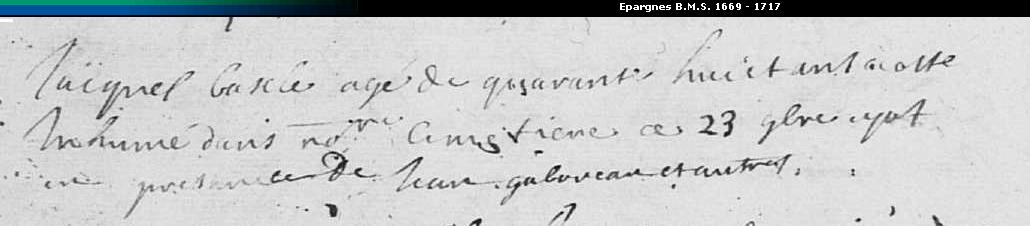 Epargnes B.M.S. 1669 - 1717
Jacques basle agé de quarante huict ans a este
Inhumé dans nore Cimetiere ce 23 9bre 
en presence de Jean galoreau et autres.